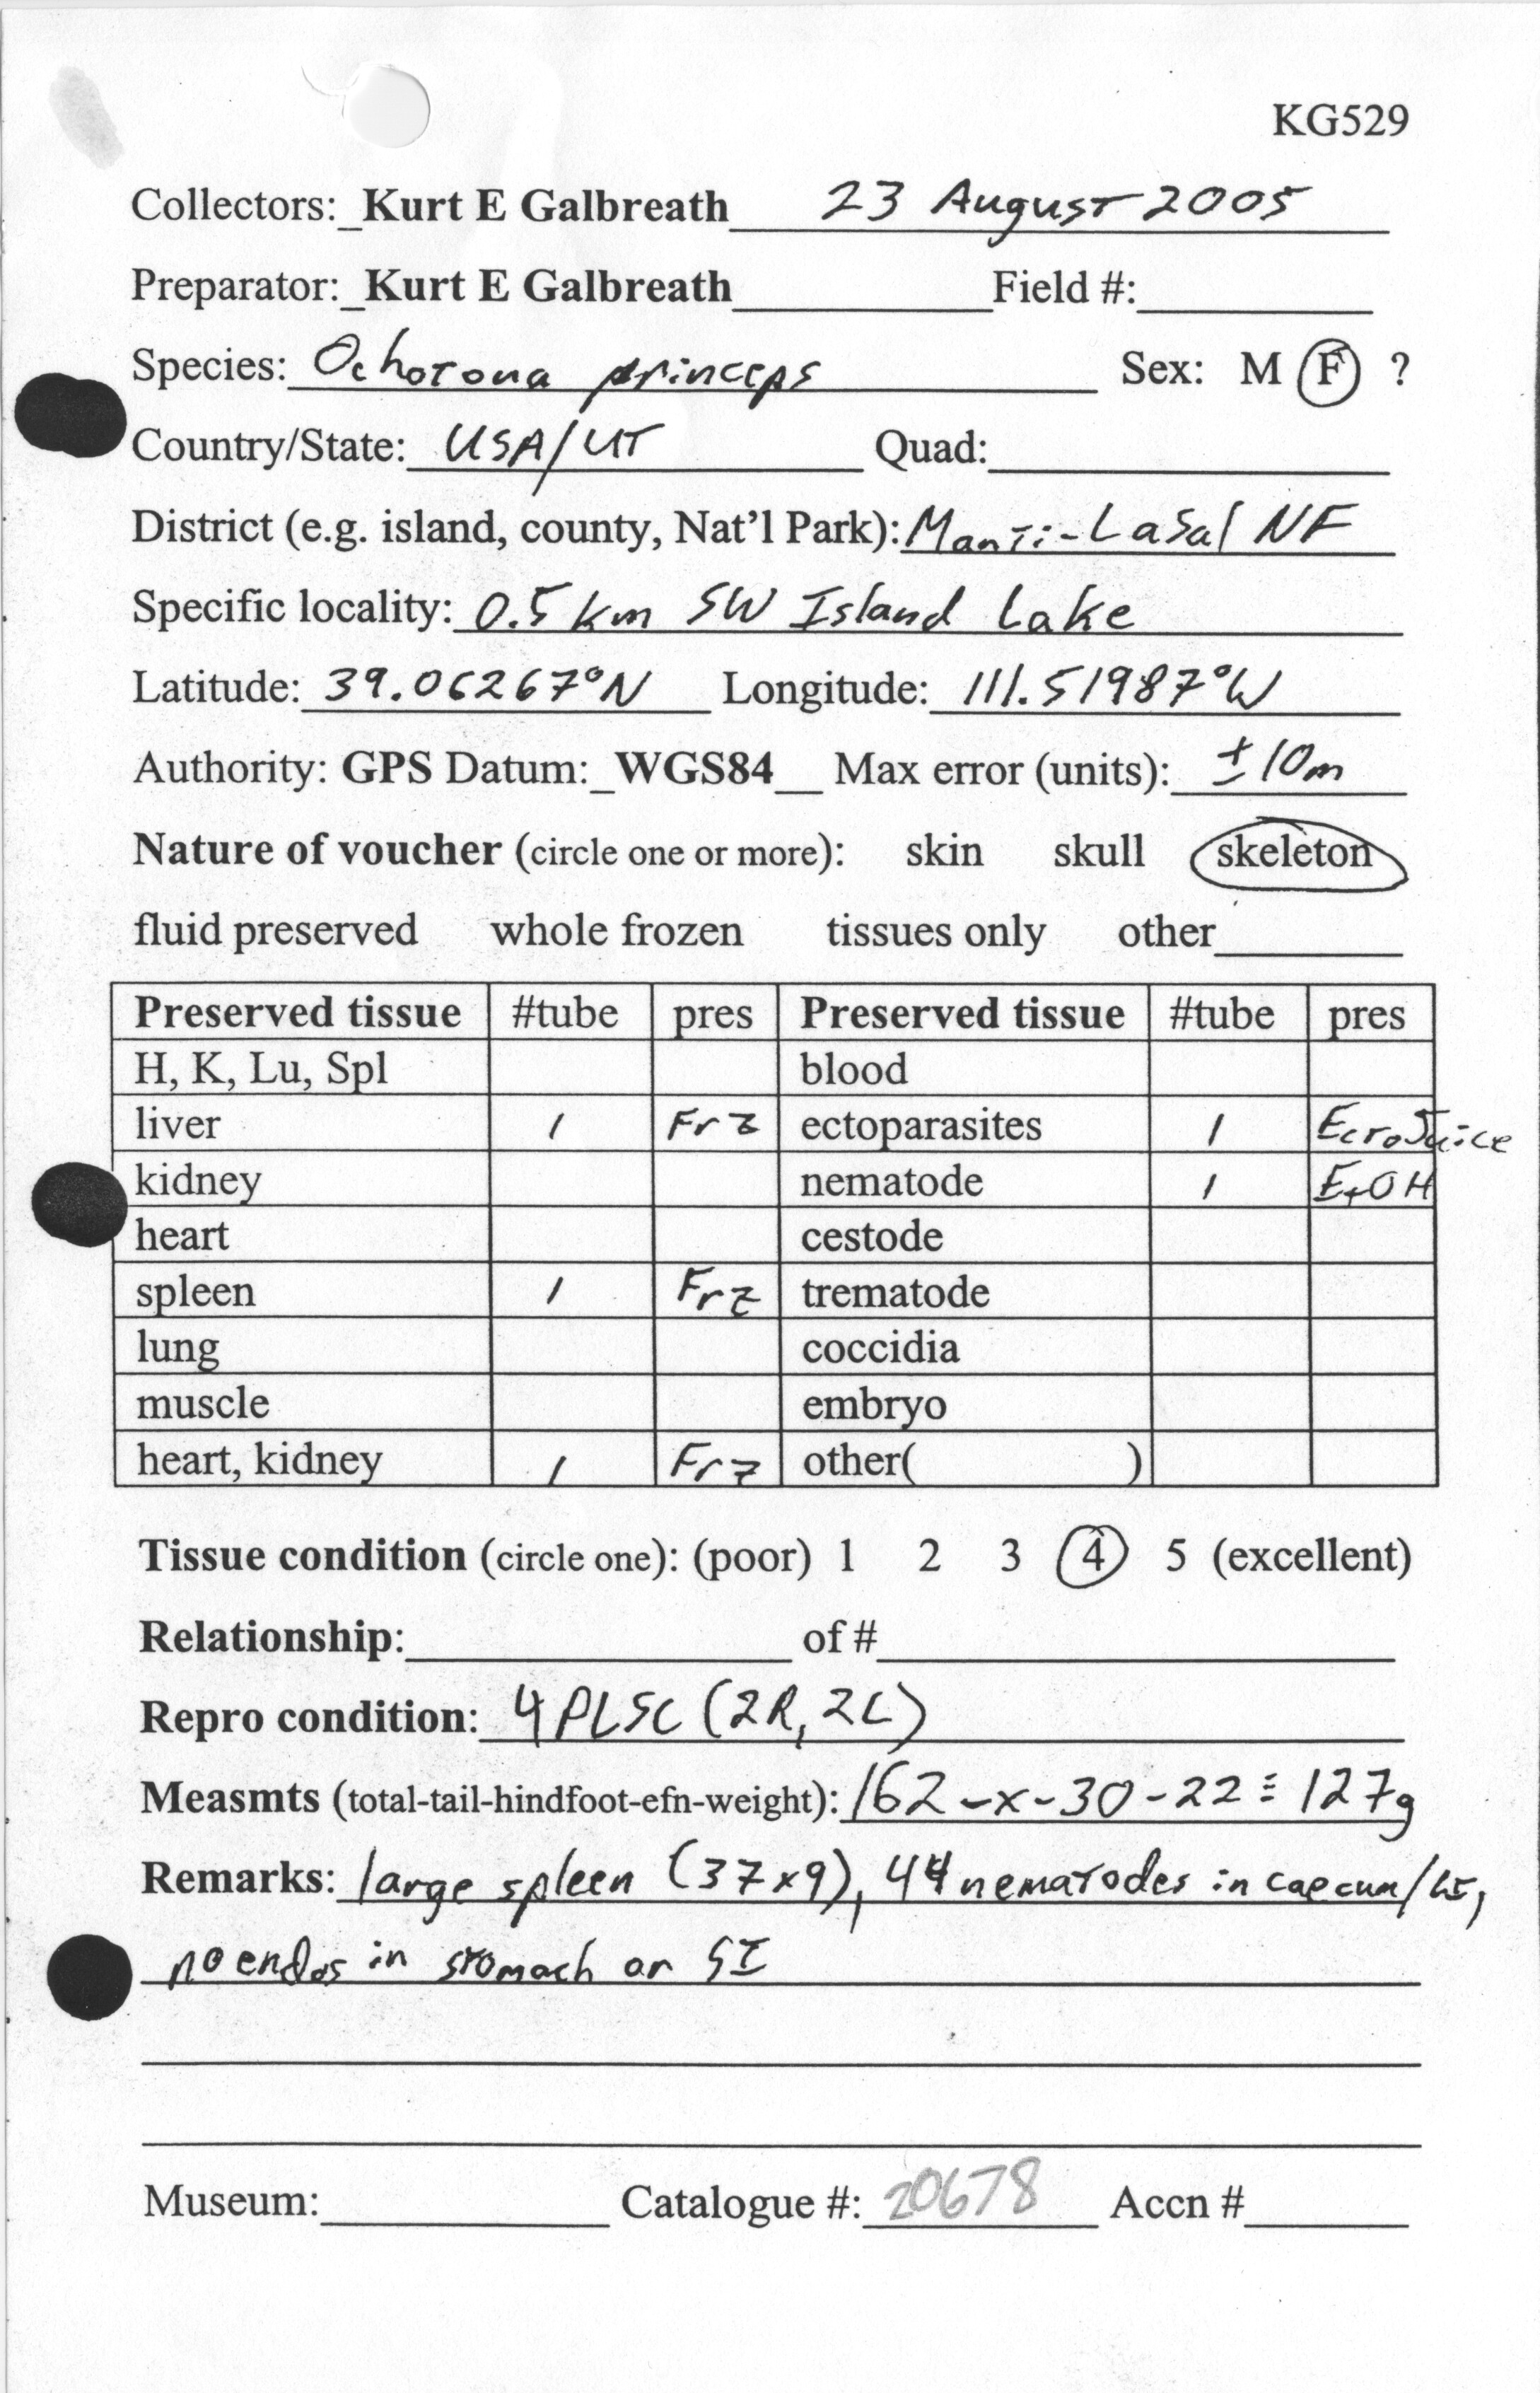 KG529
Collectors: Kurt E Galbreath 23 August 2005
Preparator: Kurt E Galbreath Field #:
Species: Ochotona princeps Sex: M F ?
Country/State: USA/UT Quad:
District (e.g. island, county, Nat'l Park): Manti-LaSal NF
Specific locality: 0.5 km SW Island Lake
Latitude: 39.06267°N Longitude: 111.51987°W
Authority: GPS Datum: WGS84 Max error (units): ±10m
Nature of voucher (circle one or more): skin skull skeleton
fluid preserved whole frozen tissues only other
Preserved tissue #tube pres Preserved tissue #tube pres
H, K, Lu, Spl blood
liver 1 Frz ectoparasites 1 EctoJuice
kidney nematode 1 EtOH
heart cestode
spleen 1 Frz trematode
lung coccidia
muscle embryo
heart, kidney 1 Frz other( )
Tissue condition (circle one): (poor) 1 2 3 4 5 (excellent)
Relationship: of #
Repro condition: 4 PLSC (2R, 2L)
Measmts (total-tail-hindfoot-efn-weight): 162-x-30-22≡127g
Remarks: large spleen (37x9), 44 nematodes in caecum/LI,
no endos in stomach or SI
Museum: Catalogue #: 20678 Accn #